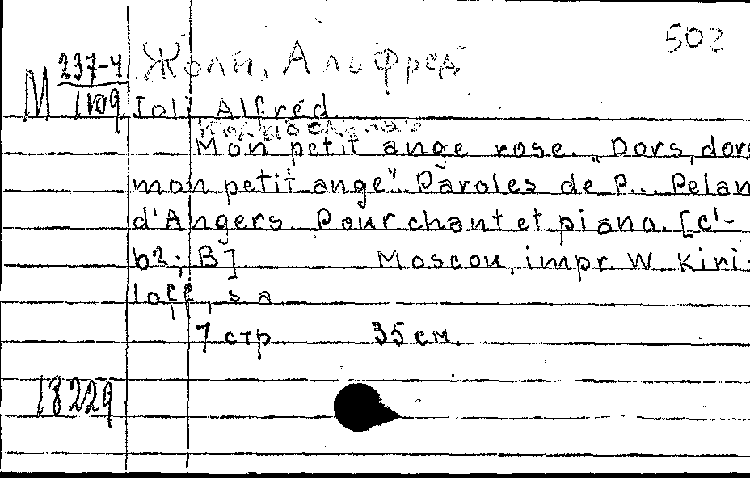 502
Жоли, Альфред
М 237-4/1109
Joli Alfred
Mon petit ange rose. „Dors, dors
mon petit ange". Paroles de P... Pelan
d'Angers. Pour chant et piano. [c'-
b2; B] Moscou, impr. W. Kiri-
loff, s a
7 стр 35 см.
18229